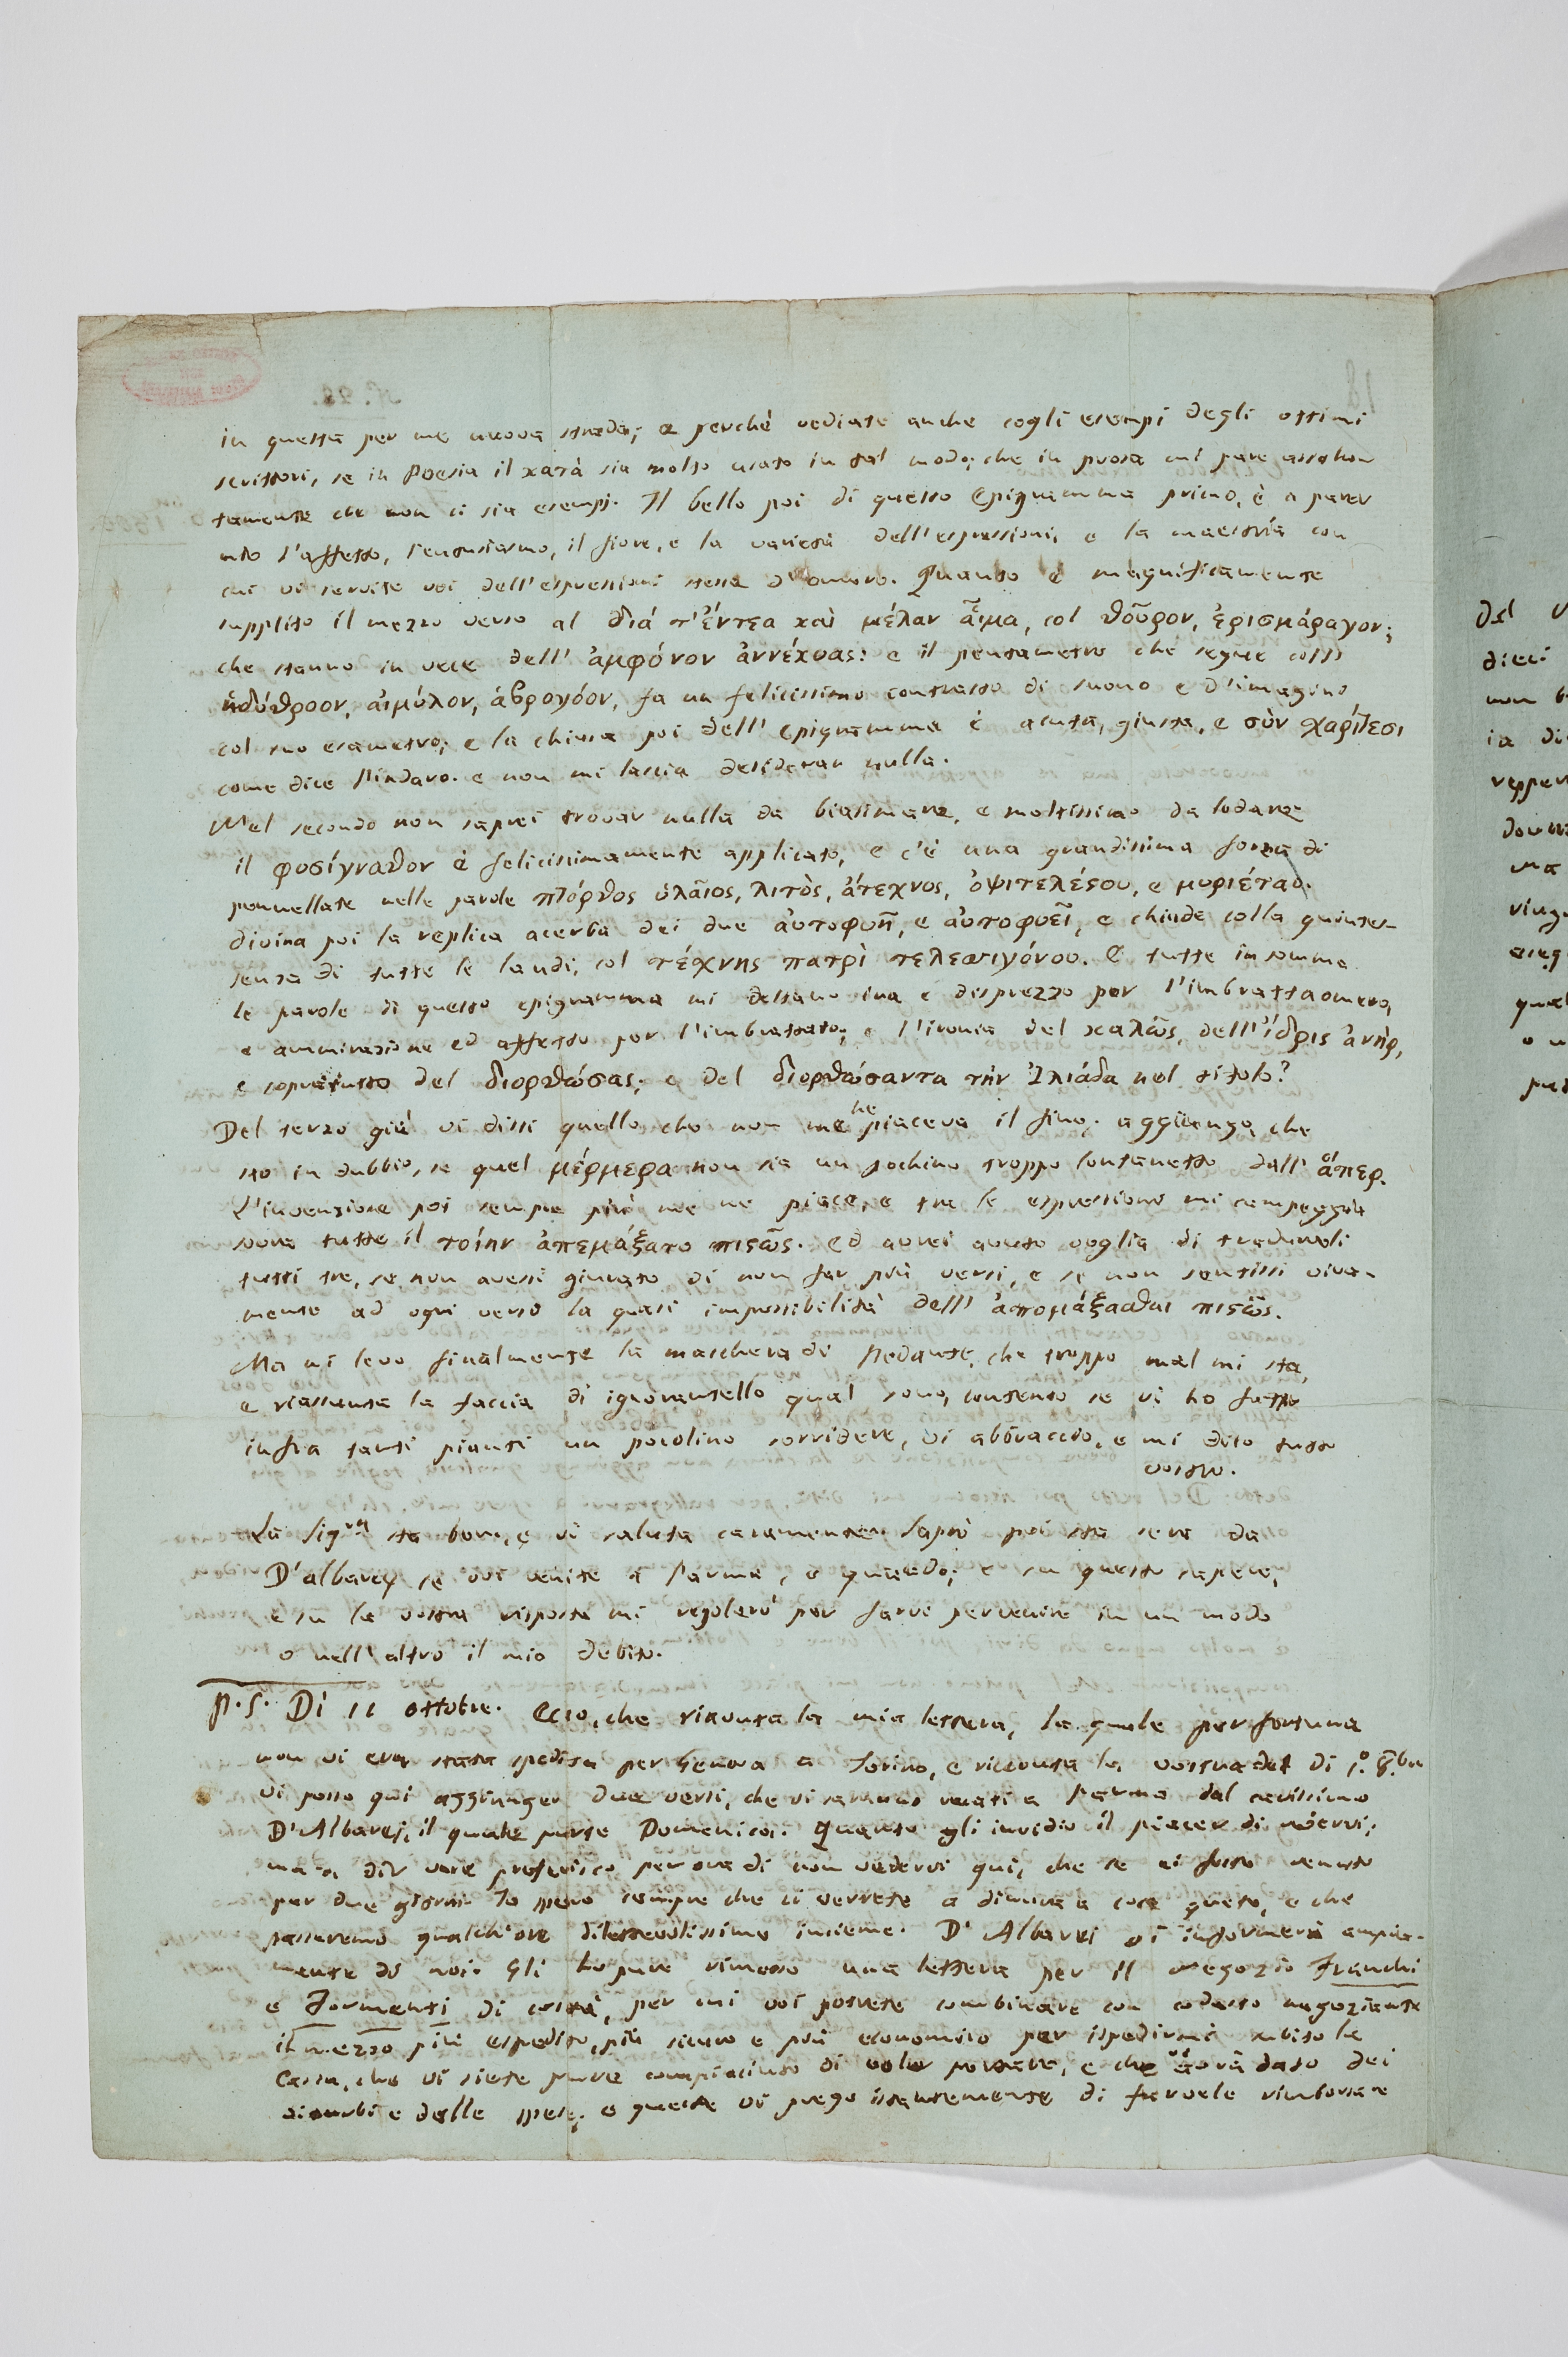 N.° 28.
18
in questa per me nuova strada; e perchè vediate anche cogli esempi degli ottimi
scrittori, se in Poesia il κατά sia molto usato in tal modo; che in prosa mi pare assolutam
tamente che non ci sia esempj. Il bello poi di questo Epigramma primo, è a parer
mio l'affetto, l'entusiasmo, il fiore, e la varietà dell'espressioni, e la maestria con
cui vi servite voi dell'espressioni stesse d'omero. Quanto è magnificamente
supplito il mezzo verso al διά τ'ἔντεα καὶ μέλαν αἷμα, col θοῦρον, ἐρισμάραγον;
che stanno in vece dell' ἀμφόνον ἀννέχυας: e il pentametro che segue colli
ἡδύθροον, αἱμύλον, ἁβρογόον, fa un felicissimo contrasto di suono e d'imagine
col suo esametro; e la chiusa poi dell' epigramma è acuta, giusta, e σὺν χαρίτεσι
come dice Pindaro. e non mi lascia desiderar nulla.
Nel secondo non saprei trovar nulla da biasimare, e moltissimo da lodare
il φυσίγναθον è felicissimamente applicato, e c'è una grandissima forza di
pennellate nelle parole πτόρθος ὑλαῖος, λιτὸς, ἄτεχνος, ὀψιτελέσου, e μυριέταο.
divina poi la replica acerba dei due αὐτοφυῆ, e αὐτοφυεῖ, e chiude colla quintes-
senza di tutte le laudi, col τέχνης πατρὶ τελεσσιγόνου. E tutte in somma
le parole di questo epigramma mi destano ira e disprezzo per l'imbrattaomero,
e ammirazione ed affetto per l'imbrattato; e l'ironia del καλῶς, dell'ἴδρις ἀνὴρ,
e sopratutto del διορθώσας; e del διορθώσαντα τὴν Ἰλιάδα nel titolo?
Del terzo già vi dissi quello che non me ne piaceva il fine; aggiungo, che
sto in dubbio, se quel μέρμερα non sia un pochino troppo lontanetto dall' ἅπερ.
L'invenzione poi sempre più me ne piace, e tra le espressioni mi campeggia
sovra tutte il τοίην ἀπεμάξατο πιςῶς. ed avrei avuto voglia di tradurveli
tutti tre, se non avessi giurato di non far più versi, e se non sentissi viva-
mente ad ogni verso la quasi impossibilità dell' ἀπομάξασθαι πιςῶς.
Ma mi levo finalmente la maschera di Pedante, che troppo mal mi sta,
e riassunta la faccia di ignorantello qual sono, contento se vi ho fatto
infra tanti pianti un pocolino sorridere, vi abbraccio, e mi dico tutto
vostro.
La Sig.ra sta bene, e vi saluta caramente. Saprò poi sta sera da
D'albarey se voi venite a Parma, e quando; e su questo sapere,
e su la vostra risposta mi regolerò per farvi pervenire in un modo
o nell'altro il mio debito.
P.S. Di 11 ottobre. Ecco, che riavuta la mia lettera, la quale per fortuna
non vi era stata spedita per Genova a Torino, e ricevuta la vostra del di 1.° 8.bre
vi posso qui aggiunger due versi, che vi saranno recati a Parma dal carissimo
D'Albarey, il quale parte Domenica. Quanto gli invidio il piacer di vedervi;
ma a dir vero preferisco per ora di non vedervi qui, che se ci foste venuto
per due giorni. Io spero sempre che ci verrete a dimora a cose quete, e che
passeremo qualch'ore dilettevolissime insieme. D'Albarey vi informerà ampia-
mente di noi. Gli ho pure rimesso una lettera per il negozio Franchi
e Formenti di costà, per cui voi potrete combinare con codesto negoziante
il mezzo più espedito, più sicuro e più economico per ispedirmi subito la
Cassa, che vi siete pure compiaciuto di voler portare, e che vi avrà dato dei
disturbi e delle spese; e queste vi prego istantemente di farvele rimborsare